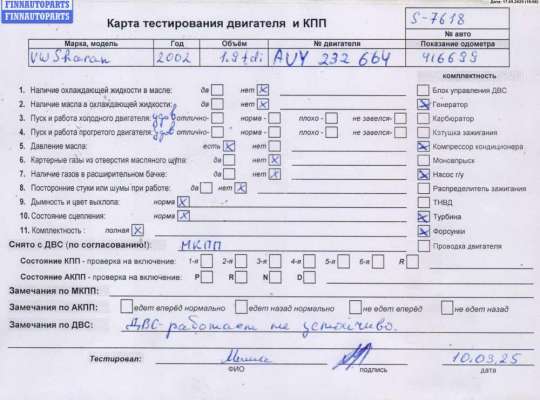 FINNAUTOPARTS
FINNAUTOPARTS
Карта тестирования двигателя и КПП
S-7618
№ авто
Марка, модель Год Объём № двигателя Показание одометра
VW Sharan 2002 1.9 tdi AUY 232 664 416699
комплектность
1. Наличие охлаждающей жидкости в масле: да нет X Блок управления ДВС
2. Наличие масла в охлаждающей жидкости: да нет X Генератор
3. Пуск и работа холодного двигателя: удов отлично- норма - плохо - не завелся- Карбюратор
4. Пуск и работа прогретого двигателя: удов отлично- норма - плохо - не завелся- Катушка зажигания
5. Давление масла: есть X нет Компрессор кондиционера
6. Картерные газы из отверстия масляного щупа: да нет X Моновпрыск
7. Наличие газов в расширительном бачке: да нет X Насос г/у
8. Посторонние стуки или шумы при работе: да нет X Распределитель зажигания
9. Дымность и цвет выхлопа: норма X ТНВД
10. Состояние сцепления: норма X Турбина
11. Комплектность : полная X Форсунки
Снято с ДВС (по согласованию!): МКПП Проводка двигателя
Состояние КПП - проверка на включение: 1-я 2-я 3-я 4-я 5-я 6-я R
Состояние АКПП - проверка на включение: P R N D
Замечания по МКПП:
Замечания по АКПП: едет вперёд нормально едет назад нормально не едет вперёд не едет назад
Замечания по ДВС: ДВС-работает не устойчиво.
Тестировал: 10.03.25
ФИО подпись дата